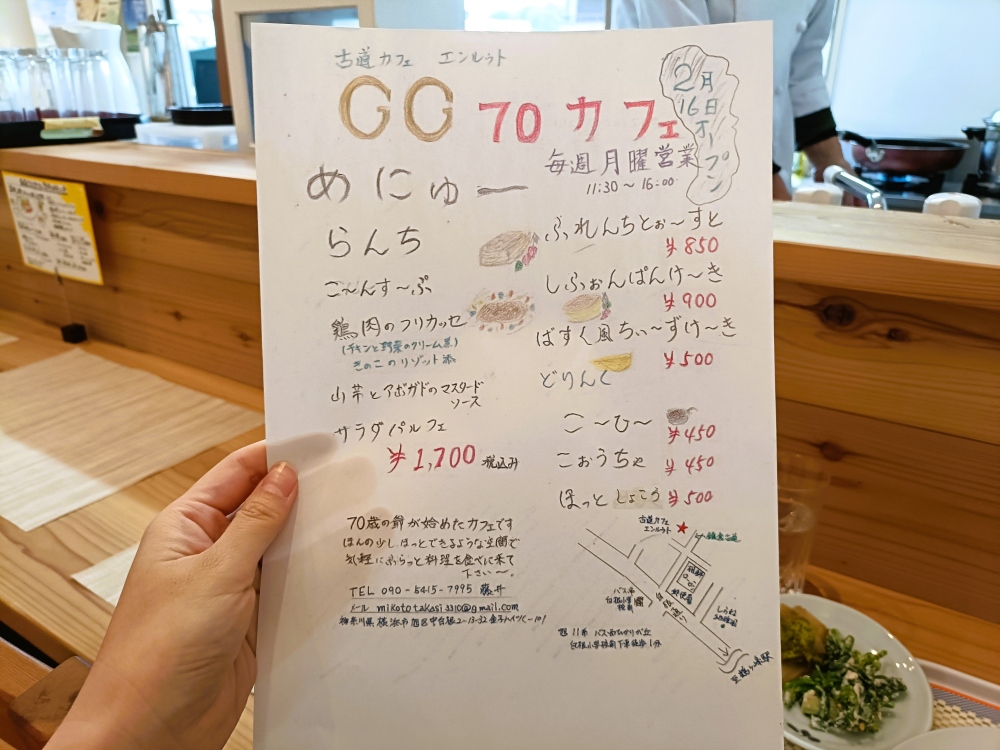 古道カフェ エンルート
GG 70 カフェ
2月
16日
オープン
めにゅー
毎週月曜営業
11:30～16:00
らんち
こ～んす～ぷ
鶏肉のフリカッセ
(チキンと野菜のクリーム煮)
きのこのリゾット添
山芋とアボガドのマスタード
ソース
サラダパルフェ
¥1,700 税込み
ふれんちとぉ～すと
¥850
しふぉんぱんけ～き
¥900
ばすく風ちぃ～ずけ～き
¥500
どりんく
こ～ひ～
¥450
こぉうちゃ ¥450
ほっとしょこら ¥500
70歳の爺が始めたカフェです
ほんの少しほっとできるような空間で
気軽にふらっと料理を食べに来て
下さい～。
TEL 090-5415-7995 藤井
メール mikototakasi3310@gmail.com
神奈川県横浜市旭区中白根2-13-32 金子ハイツC-101
古道カフェ
エンルート
鎌倉古道
バス停
白根小学校前
郵便局
白根通り
至鶴ヶ峰駅
旭11系 バス ひかりが丘
白根小学校前下車徒歩1分